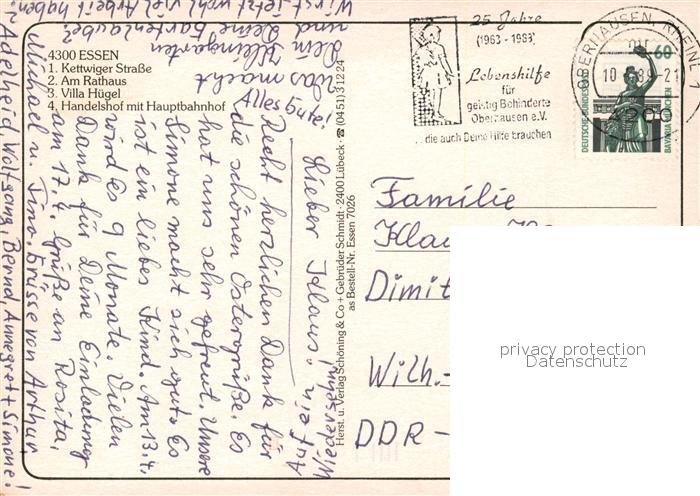 4300 ESSEN
1. Kettwiger Straße
2. Am Rathaus
3. Villa Hügel
4. Handelshof mit Hauptbahnhof
Lieber Klaus!
Recht herzlichen Dank für
die schönen Ostergrüße. Es
hat uns sehr gefreut. Unsere
Simone macht sich gut. Es
ist ein liebes Kind. Am 13.4.
wird es 9 Monate. Vielen
Dank für Deine Einladung
am 17.4. Grüße an Rosita,
Michael u. Timo. Grüsse von Arthur
Adelheid, Wolfgang, Bernd, Annegret + Simone!
Alles Gute!
Was macht
Dein Kleingarten
und Deine Gartenlaube?
Wirst jetzt wohl viel Arbeit haben?
Auf ein
Wiedersehn!
Herst. u. Verlag Schöning & Co + Gebrüder Schmidt · 2400 Lübeck · ☎ (04 51) 3 12 24
as Bestell-Nr. Essen 7026
25 Jahre
(1963 - 1988)
Lebenshilfe
für
geistig Behinderte
Oberhausen e.V.
... die auch Deine Hilfe brauchen
OBERHAUSEN, RHEINL 1
-21
4200
60
DEUTSCHE BUNDESPOST
BAVARIA MÜNCHEN
Familie
Dimit
Wilh.-
DDR -
privacy protection
Datenschutz